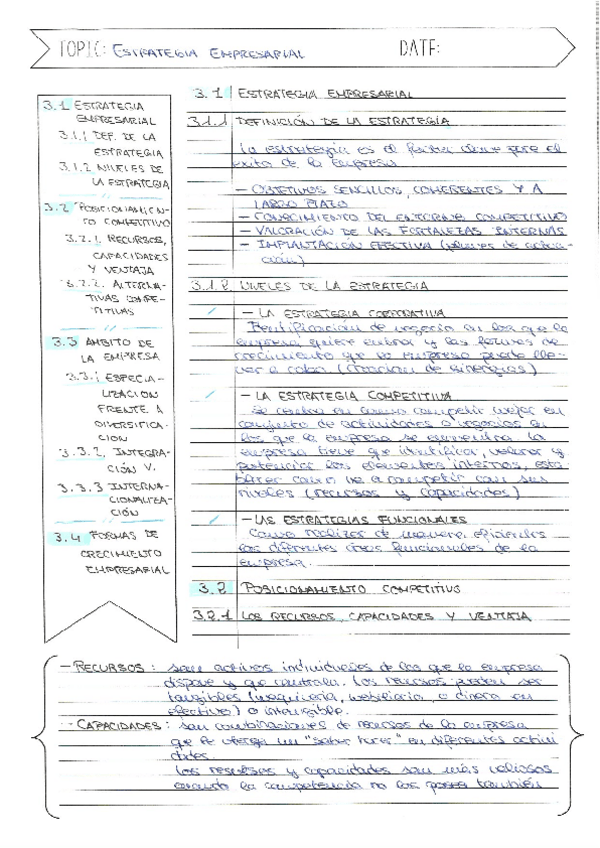 TOPIC: ESTRATEGIA EMPRESARIAL
DATE:
3.1 ESTRATEGIA
EMPRESARIAL
3.1.1 DEF. DE LA
ESTRATEGIA
3.1.2 NIVELES DE
LA ESTRATEGIA
3.2 POSICIONAMIEN-
TO COMPETITIVO
3.2.1. RECURSOS,
CAPACIDADES
Y VENTAJA
3.2.2. ALTERNA-
TIVAS COMPE-
TITIVAS
3.3 AMBITO DE
LA EMPRESA
3.3.1 ESPECIA-
LIZACION
FRENTE A
DIVERSIFICA-
CION
3.3.2. INTEGRA-
CIÓN V.
3.3.3 INTERNA-
CIONALIZA-
CIÓN
3.4 FORMAS DE
CRECIMIENTO
EMPRESARIAL
3.1 ESTRATEGIA EMPRESARIAL
3.1.1 DEFINICIÓN DE LA ESTRATEGIA
La estrategia es el factor clave para el
exito de la empresa
- OBJETIVOS SENCILLOS, COHERENTES Y A
LARGO PLAZO
- CONOCIMIENTO DEL ENTORNO COMPETITIVO
- VALORACIÓN DE LAS FORTALEZAS INTERNAS
- IMPLANTACIÓN EFECTIVA (planes de actua-
ción)
3.1.2 NIVELES DE LA ESTRATEGIA
- LA ESTRATEGIA CORPORATIVA
Identificacion de negocio en los que la
empresa quiere entrar y las formas de
crecimiento que la empresa puede lle-
var a cabo (creacion de sinergias)
- LA ESTRATEGIA COMPETITIVA
Se centra en como competir mejor en
conjunto de actividades o negocios en
los que la empresa se encuentra. La
empresa tiene que identificar, valorar y
potenciar los elementos internos, esto
como va a competir con sus
niveles (recursos y capacidades)
- LAS ESTRATEGIAS FUNCIONALES
Como realizar de manera eficiente
las diferentes areas funcionales de la
empresa.
3.2 POSICIONAMIENTO COMPETITIVO
3.2.1 LOS RECURSOS, CAPACIDADES Y VENTAJA
- RECURSOS: son activos individuales de los que la empresa
dispone y que controla. Los recursos pueden ser
tangibles (maquinaria, mobiliario, o dinero en
efectivo) o intangible.
- CAPACIDADES: son combinaciones de recursos de la empresa
que le otorga un "saber hacer" en diferentes activi
dades.
Los recursos y capacidades son más valiosos
cuando la competencia no los posee también